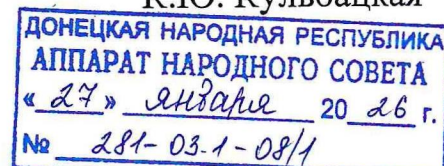 К.Ю. Кульбацкая
ДОНЕЦКАЯ НАРОДНАЯ РЕСПУБЛИКА
АППАРАТ НАРОДНОГО СОВЕТА
«27» января 2026 г.
№ 281-03.1-08/1